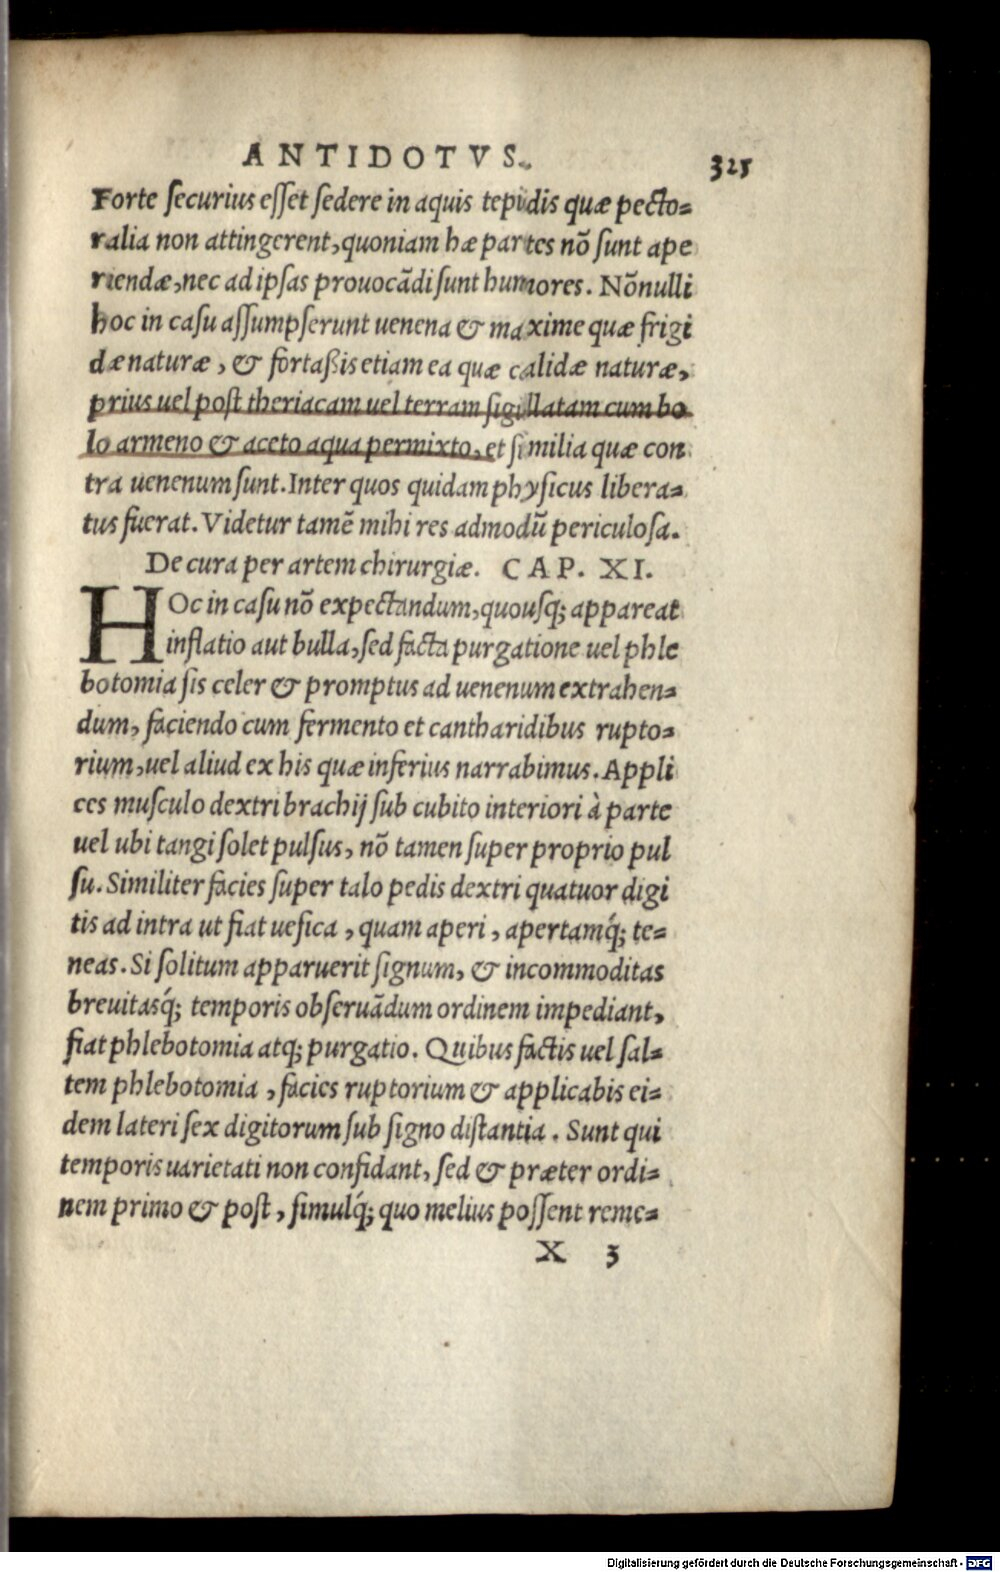 ANTIDOTVS. 325
Forte securius esset sedere in aquis tepidis quæ pecto=
ralia non attingerent, quoniam hæ partes nõ sunt ape
riendæ, nec ad ipsas prouocãdi sunt humores. Nõnulli
hoc in casu assumpserunt uenena & maxime quæ frigi
dæ naturæ, & fortaßis etiam ea quæ calidæ naturæ,
prius uel post theriacam uel terram sigillatam cum bo
lo armeno & aceto aqua permixto, et similia quæ con
tra uenenum sunt. Inter quos quidam physicus libera=
tus fuerat. Videtur tamẽ mihi res admodũ periculosa.
De cura per artem chirurgiæ. CAP. XI.
HOc in casu nõ expectandum, quousq; appareat
inflatio aut bulla, sed facta purgatione uel phle
botomia sis celer & promptus ad uenenum extrahen=
dum, faciendo cum fermento et cantharidibus rupto=
rium, uel aliud ex his quæ inferius narrabimus. Appli
ces musculo dextri brachij sub cubito interiori à parte
uel ubi tangi solet pulsus, nõ tamen super proprio pul
su. Similiter facies super talo pedis dextri quatuor digi
tis ad intra ut fiat uesica, quam aperi, apertamq́; te=
neas. Si solitum apparuerit signum, & incommoditas
breuitasq́; temporis obseruãdum ordinem impediant,
fiat phlebotomia atq; purgatio. Quibus factis uel sal=
tem phlebotomia, facies ruptorium & applicabis ei=
dem lateri sex digitorum sub signo distantia. Sunt qui
temporis uarietati non confidant, sed & præter ordi=
nem primo & post, simulq́; quo melius possent reme=
X 3
Digitalisierung gefördert durch die Deutsche Forschungsgemeinschaft - DFG